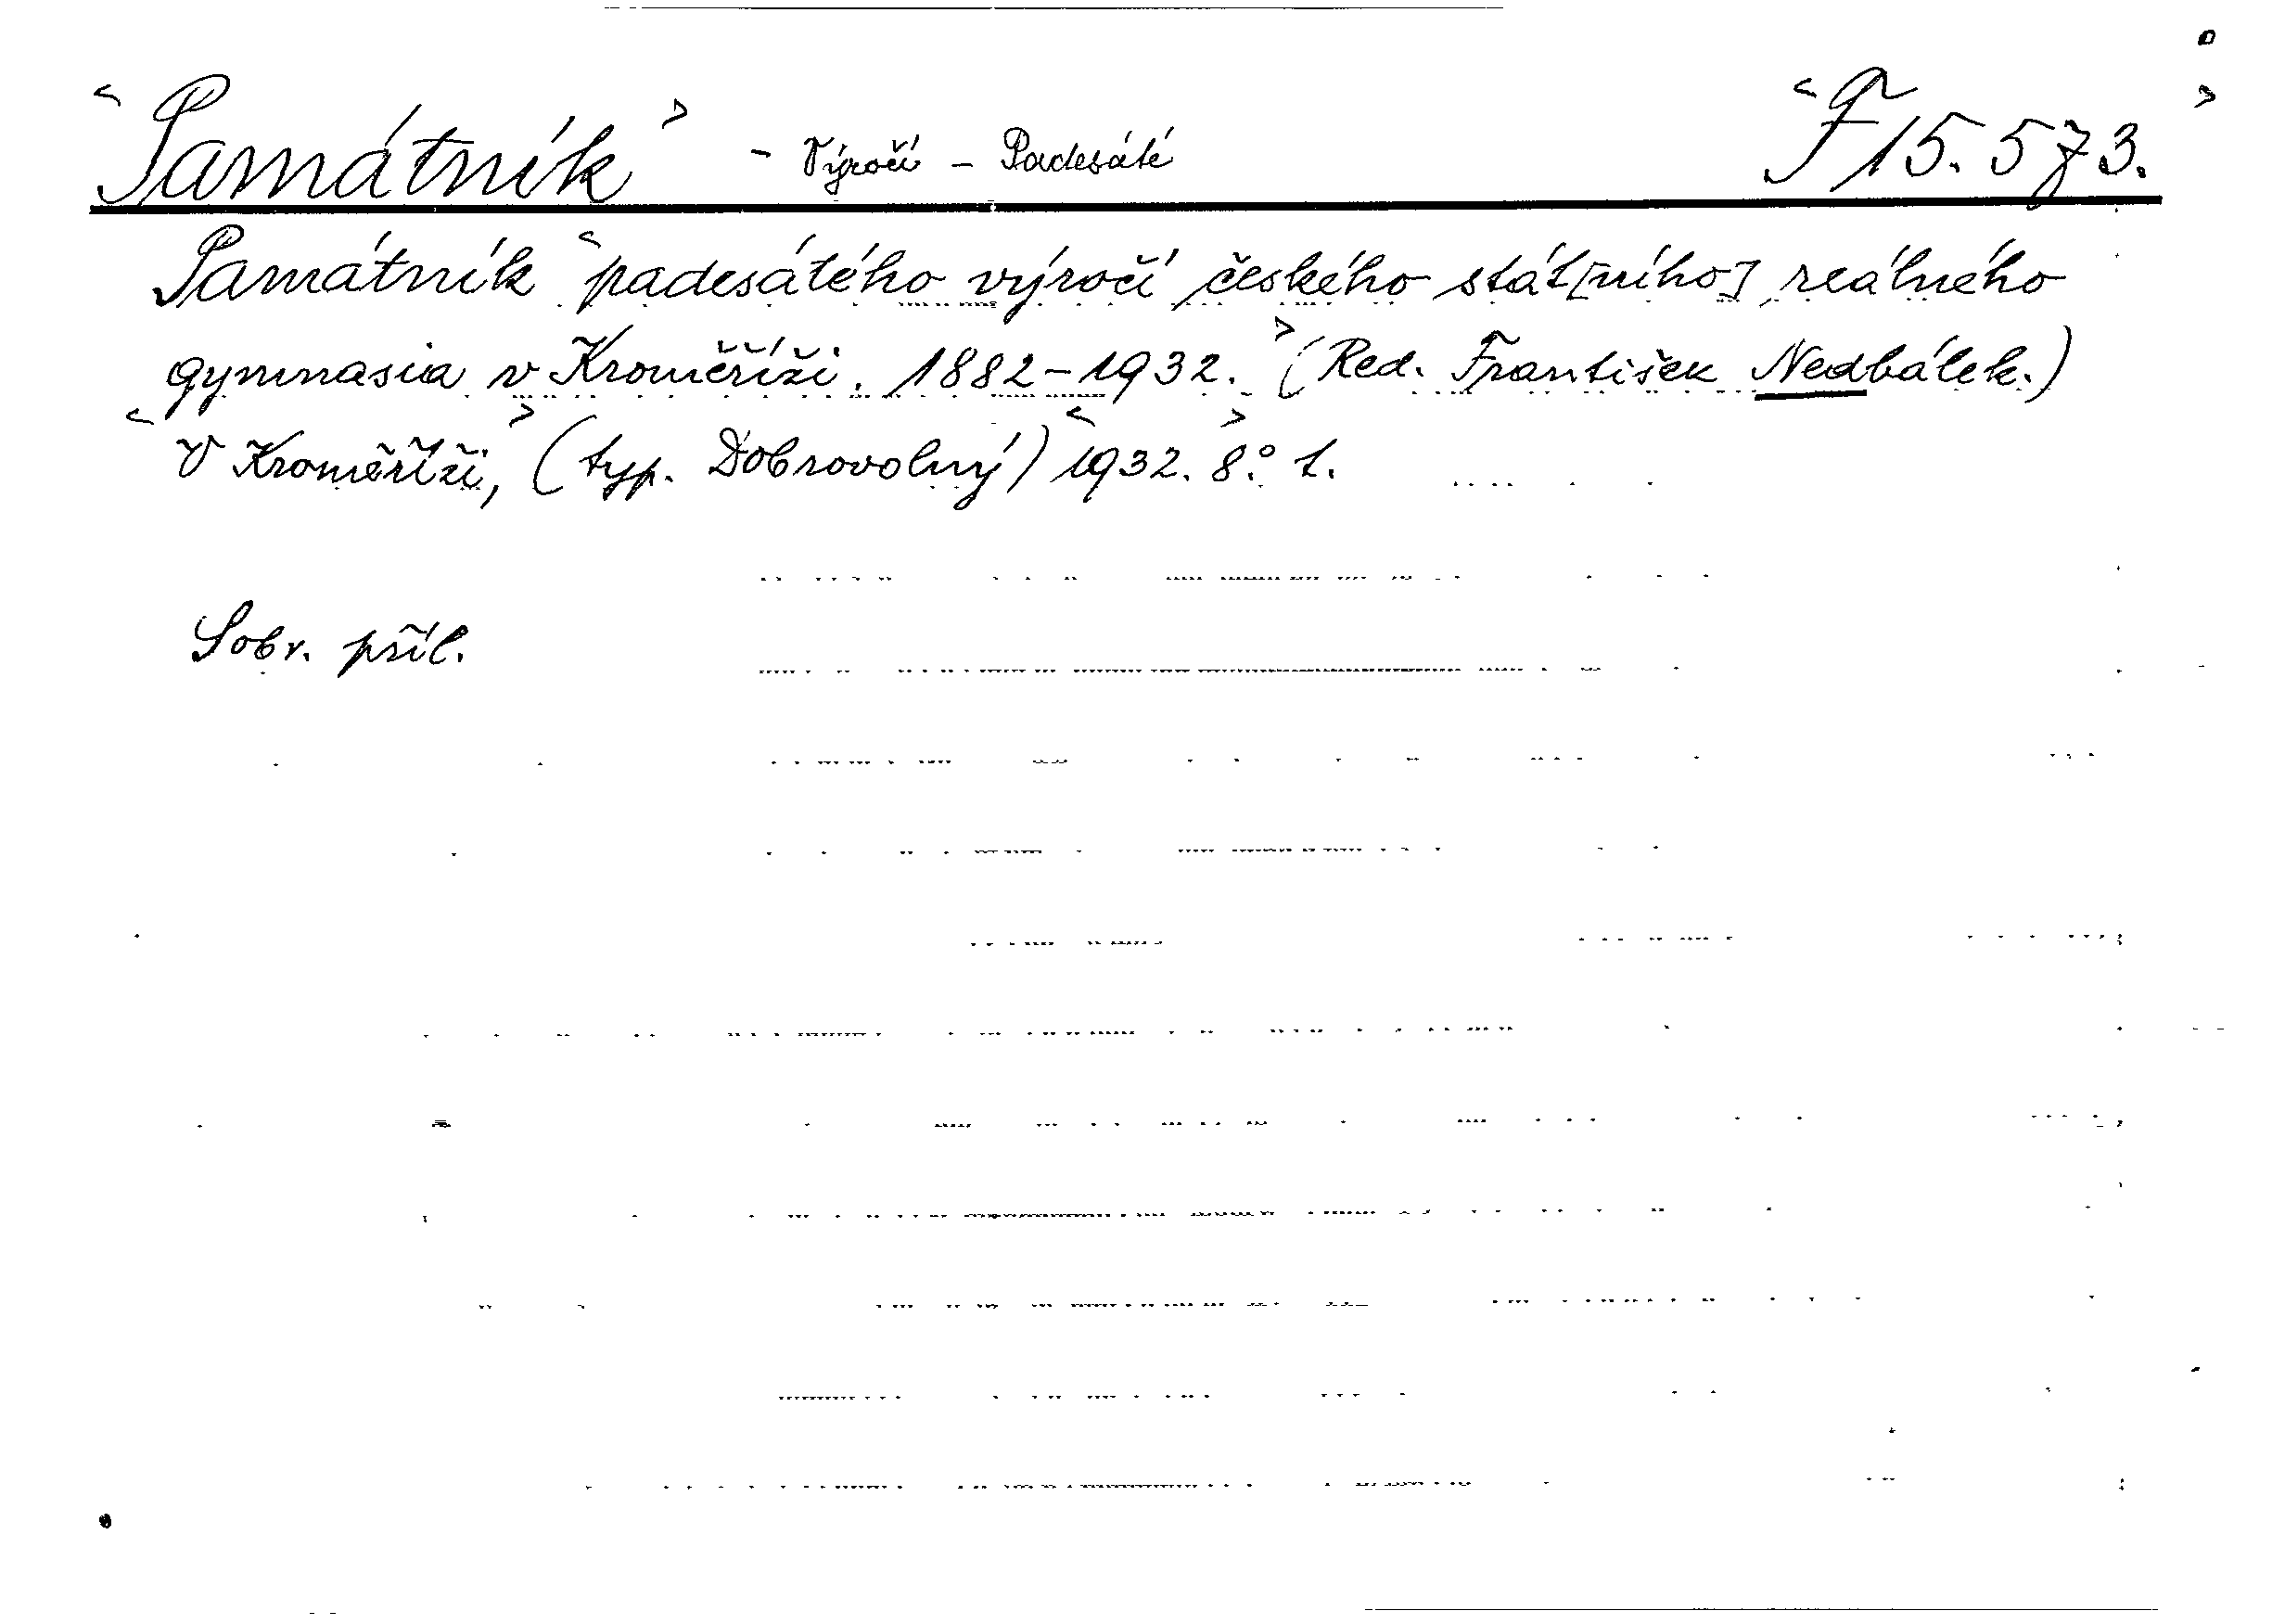 <Památník> - Výročí - Padesáté <F 15.573.>
Památník <padesátého výročí českého stát[ního] reálného
gymnasia v Kroměříži. 1882-1932.> (Red. František Nedbálek.)
<V Kroměříži,> (typ. Dobrovolný) <1932. 8°.> 1.
S obr. příl.